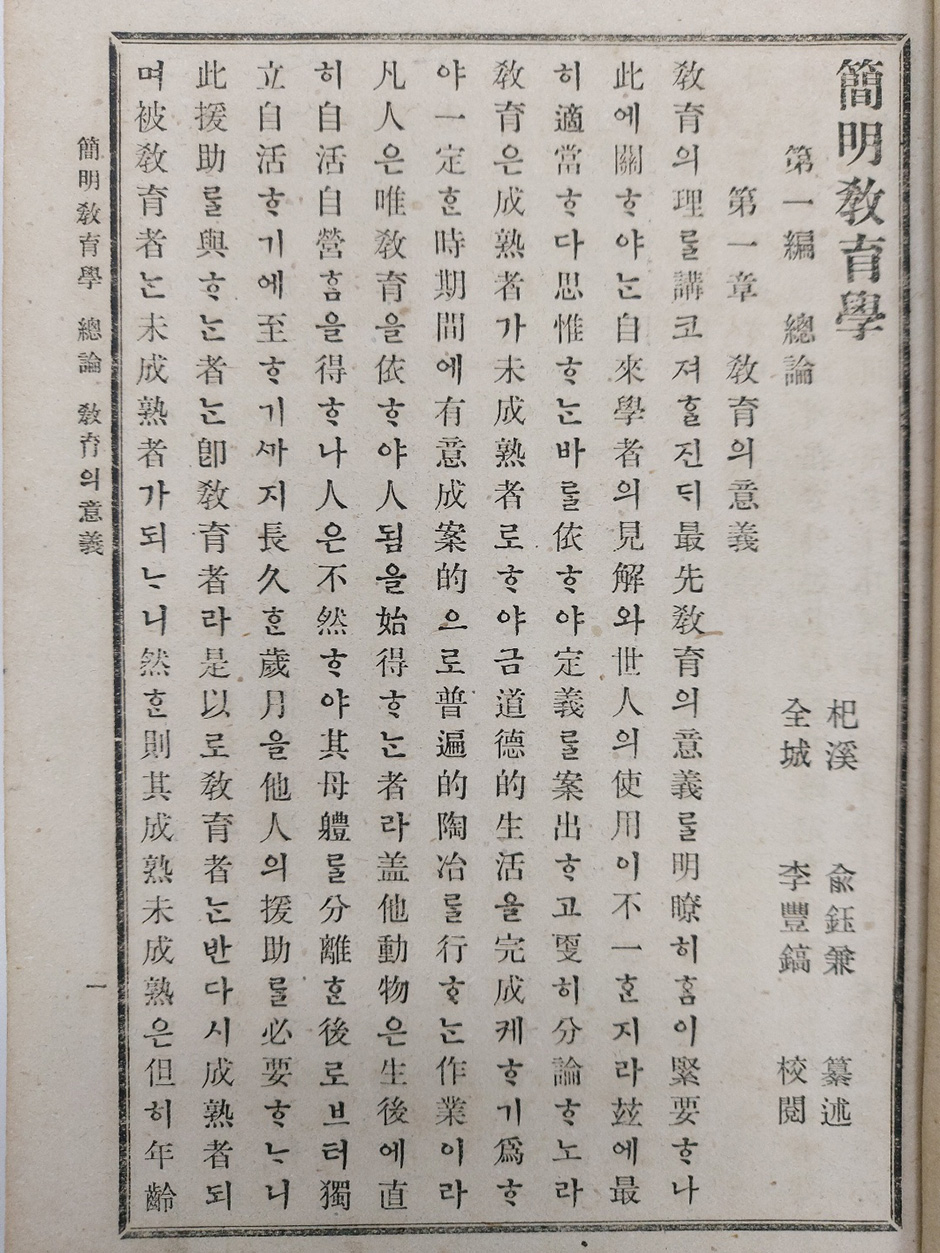 簡明敎育學
杞溪 兪鈺兼 纂述
全城 李豐鎬 校閱
第一編 總論
第一章 敎育의意義
敎育의理를講코져ᄒᆞᆯ진ᄃᆡ最先敎育의意義를明瞭히ᄒᆞᆷ이緊要ᄒᆞ나
此에關ᄒᆞ야ᄂᆞᆫ自來學者의見解와世人의使用이不一ᄒᆞᆫ지라玆에最
히適當ᄒᆞ다思惟ᄒᆞᄂᆞᆫ바를依ᄒᆞ야定義를案出ᄒᆞ고更히分論ᄒᆞ노라
敎育은成熟者가未成熟者로ᄒᆞ야금道德的生活을完成케ᄒᆞ기爲ᄒᆞ
야一定ᄒᆞᆫ時期間에有意成案的으로普遍的陶冶를行ᄒᆞᄂᆞᆫ作業이라
凡人은唯敎育을依ᄒᆞ야人됨을始得ᄒᆞᄂᆞᆫ者라盖他動物은生後에直
히自活自營ᄒᆞᆷ을得ᄒᆞ나人은不然ᄒᆞ야其母軆를分離ᄒᆞᆫ後로브터獨
立自活ᄒᆞ기에至ᄒᆞ기ᄭᅡ지長久ᄒᆞᆫ歲月을他人의援助를必要ᄒᆞᄂᆞ니
此援助를與ᄒᆞᄂᆞᆫ者ᄂᆞᆫ卽敎育者라是以로敎育者ᄂᆞᆫ반다시成熟者되
며被敎育者ᄂᆞᆫ未成熟者가되ᄂᆞ니然ᄒᆞᆫ則其成熟未成熟은但히年齡
簡明敎育學 總論 敎育의意義 一